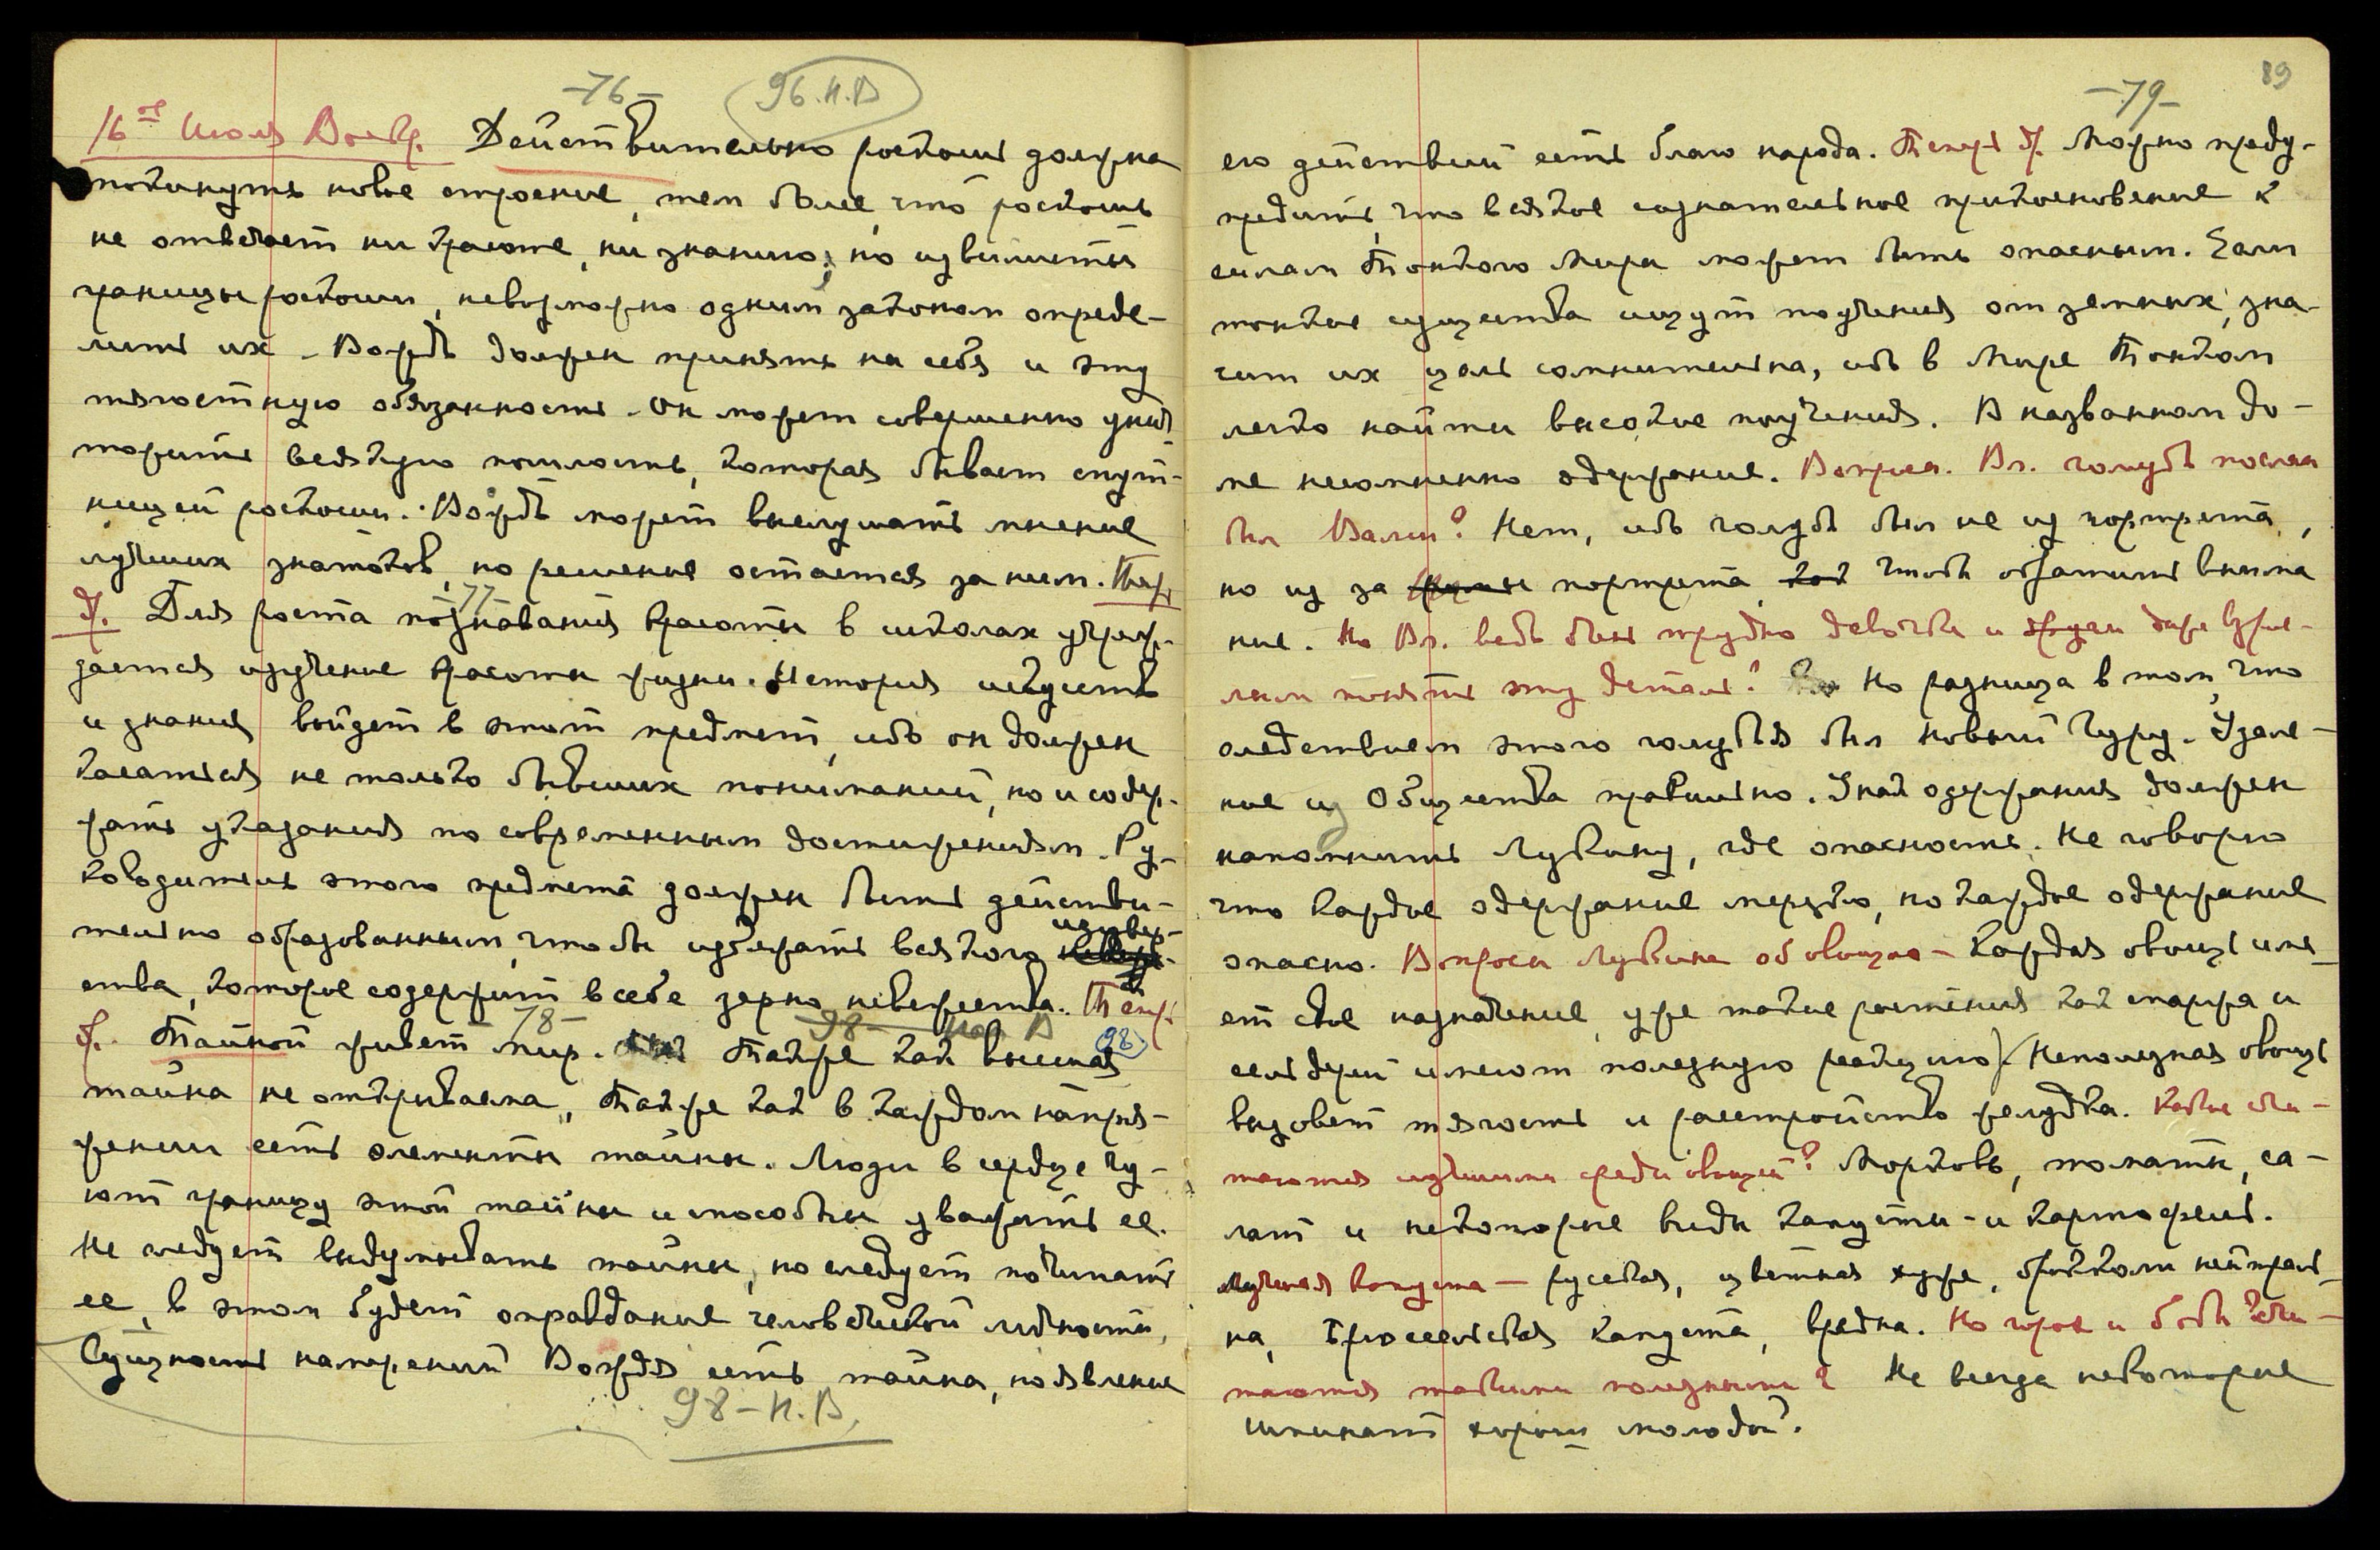 -76-
96.Н.В
16ое Июля Воскр. Действительно роскошь должна
покинуть новое строение, тем более, что роскошь
не отвечает ни красоте, ни знанию; но извилисты
границы роскоши, невозможно одним законом опреде-
лить их. Вождь должен принять на себя и эту
тягостную обязанность. Он может совершенно унич-
тожить всякую пошлость, которая бывает спут-
ницей роскоши. Вождь может выслушать мнение
лучших знатоков, но решение остается за ним. Тер.
-77-
д. Для роста познавания красоты в школах учреж-
дается изучение красоты жизни. История искусств
и знания войдет в этот предмет, ибо он должен
касаться не только бывших пониманий, но и содер-
жать указания по современным достижениям. Ру-
ководитель этого предмета должен быть действи-
тельно образованным, чтобы избежать всякого изувер-
ства, которое содержит в себе зерно невежества. Тер.
-78-
98
д. Тайной живет мир. Также как высшая
тайна не открываема, также как в каждом напря-
жении есть элементы тайны. Люди в сердце чу-
ют границу этой тайны и способны уважать ее.
Не следует выдумывать тайны, но следует почитать
ее, в этом будет оправдание человеческой личности.
Сущность намерений Вождя есть тайна, но явление
98-Н.В.
89
-79-
его действий есть благо народа. Тер. д. Можно преду-
предить, что всякое сознательное прикосновение к
силам Тонкого Мира может быть опасным. Если
тонкие существа ищут поучения от земных, зна-
чит их цель сомнительна, ибо в Мире Тонком
легко найти высокие поучения. В названном до-
ме несомненно одержание. Вопрос. Вл. голубь послан
был Вами? Нет, ибо голубь был не из портрета,
но из за портрета чтобы обратить внима
ние. Но Вл. ведь было трудно девочке и даже взрос-
лым понять эту деталь? Но разница в том, что
следствием этого голубя был новый Гуру. Удале-
ние из Общества правильно. Знак одержания должен
напомнить Лукину, где опасность. Не говорю
что каждое одержание мерзко, но каждое одержание
опасно. Вопросы Лукина об овощах - Каждая овощь име-
ет свое назначение, уже такие растения как спаржа и
сельдерей имеют полезную реакцию. Неполезная овощь
вызовет тягость и расстройство желудка. Какие счи-
таются лучшими среди овощей? Морковь, томаты, са-
лат и некоторые виды капусты - и картофель.
Лучшая капуста - русская, цветная хуже, брокколи нейтраль-
на, Брюссельская капуста, вредна. Но горох и бобы счи-
таются такими полезными? Не всегда некоторые
шпинат хорош молодой.